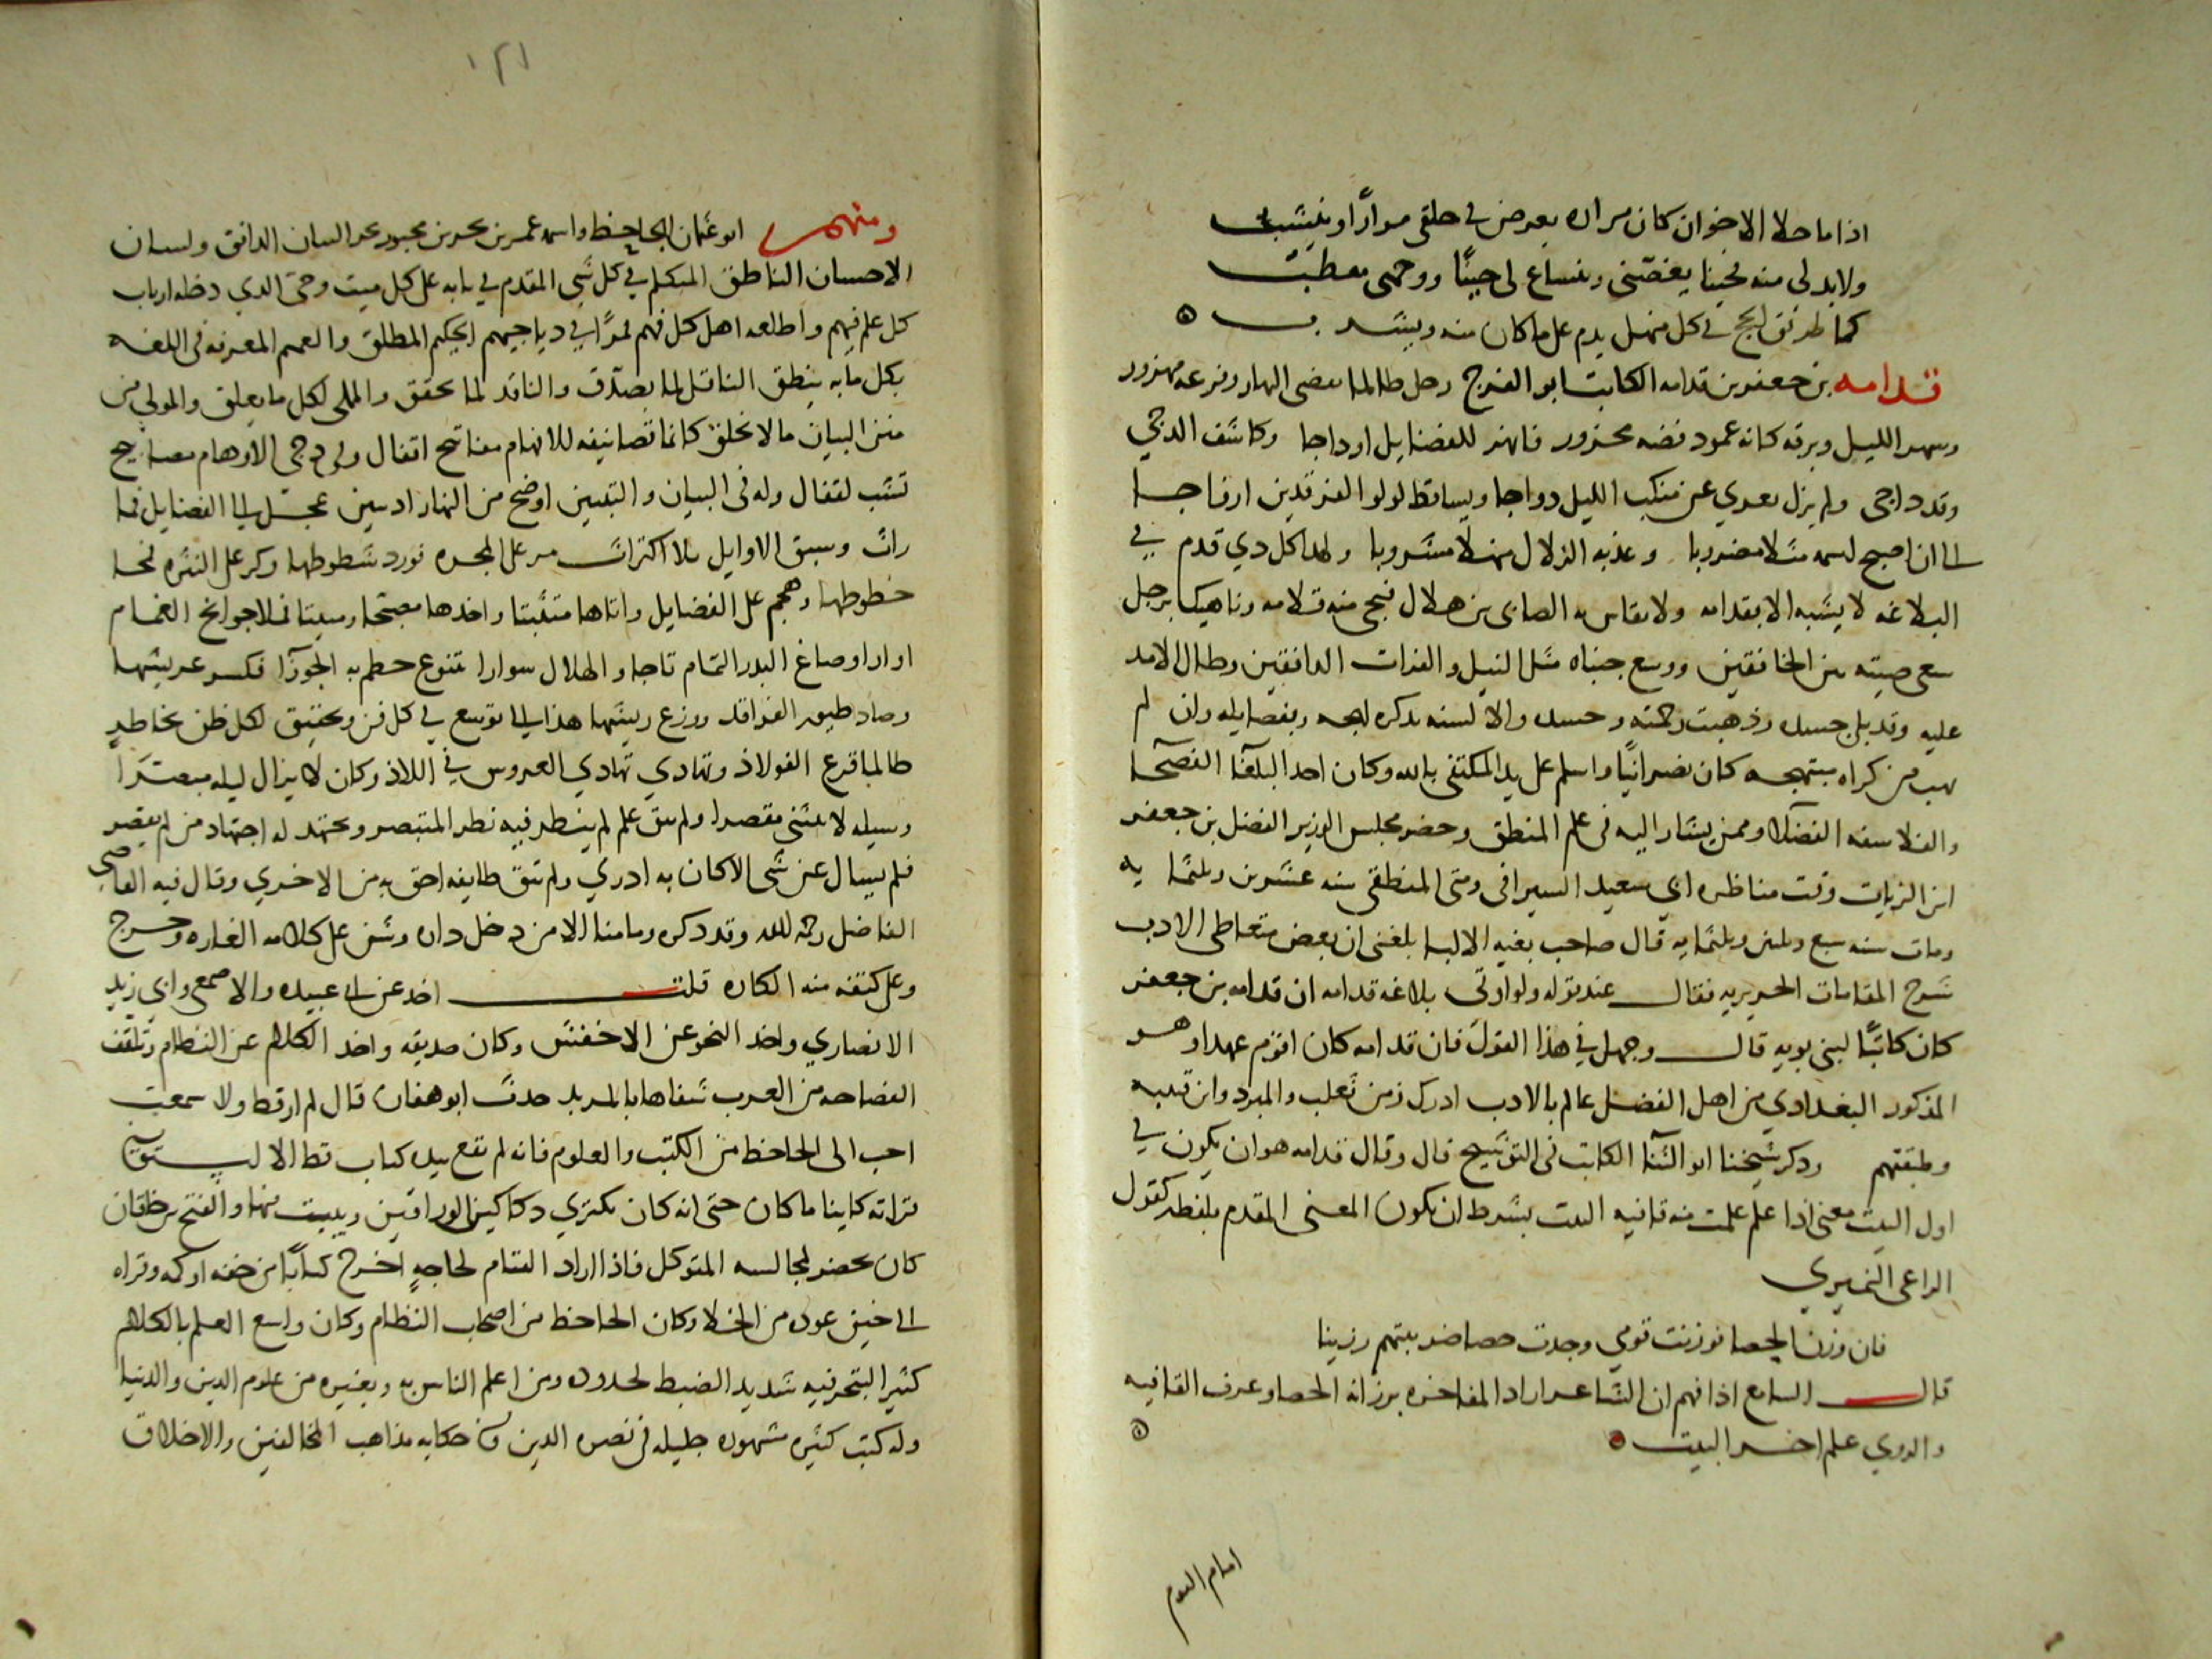 اذا ما حلا الاخوان كان مراره يعرض في حلقي مرارًا وينشب
ولا بد لي منه فحينا يغصني وينساغ لي حينًا ووجهى مقطب
كما طريق الحج في كل منهل يذم على ما كان منه ويشرب
قدامه بن جعفر بن قدامه الكاتب ابو الفرج رجل طالما
وسهر الليل وبرقه كانه عمود فضه للفضايل اوداجا وكاشف الدجى
وقد داجى ولم يزل يعري عن منكب الليل دواجا ويساقط لولو الفرقدين ازواجا
الى ان اصبح لسمه مثلا مضروبا وعذبه الزلال منهلا مشروبا ولهذا كل ذي قدم في
البلاغه لا يشبه الا بقدامه ولا يقاس به الصابى بن هلال منه قلامه وناهيك برجل
سعى صيته بين الخافقين ووسع جنباه مثل النيل والفرات الدافقين وطال الامد
عليه وقد بلي جسده وذهبت والالسنه بذكره لهجه وبفضايله وان لم
من ذكراه مبتهجه كان نصرانيًا واسلم على يد المكتفى بالله وكان احد البلغآ الفصحآ
والفلاسفه الفضلا وممن يشار اليه فى علم المنطق وحضر مجلس الوزير الفضل بن جعفر
ابن الزيات وقت مناظره ابي سعيد السيرافى ومتى المنطقي سنه عشرين وثلثمايه
ومات سنه سبع وثلثين وثلثمايه قال صاحب بغيه الالبا بلغنى ان بعض متعاطى الادب
شرح المقامات الحريريه فقال عند قوله ولو اوتى بلاغه قدامه ان قدامه بن جعفر
كان كاتبًا لبنى بويه قال وجهل في هذا القول فان قدامه كان اقدم عهدا وهو
المذكور البغدادي من اهل الفضل عالم بالادب ادرك زمن ثعلب والمبرد وابن قتيبه
وطبقتهم وذكر شيخنا ابو الثنآ الكاتب فى التوشيح قال وقال قدامه هو ان يكون في
اول البيت معنى اذا علم علمت منه قافيه البيت بشرط ان يكون المعنى المقدم بلفظه كقول
الراعى النميري
فان وزن الحصا فوزنت قومي وجدت حصا ضريبتهم رزينا
قال السامع اذا فهم ان الشاعر اراد المفاخره برزانه الحصا وعرف القافيه
والروي علم اخر البيت
امام اليوم
١٢١
ومنهم ابو عثمان الجاحظ واسمه عمرو بن بحر بن محبوب بحر البيان الدافق ولسان
الاحسان الناطق المتكلم في كل شي المقدم في بابه على كل ميت وحى الذي ارباب
كل علم فيهم واطلعه اهل كل فهم قمرًا في دياجيهم الحكيم المطلق والعميم المعرفه فى اللغه
بكل ما به ينطق الناقل لما يصدّق والناقد لما يحقق والمملى لكل ما يعلق والمولى من
منن البيان ما لا يخلق كانما تصانيفه للافهام مفاتيح اقفال وفى دجى الاوهام مصابيح
تشب لقفال وله فى البيان والتبيين اوضح من النهار اذ يبين عجل الى الفضايل فما
راث وسبق الاوايل بلا اكتراث مر على المجره فورد شطوطها وكر على النثره فمحا
خطوطها وهجم على الفضايل واتاها متثبتا واخذها مصبحا ومبيتا فملا جوانح الغمام
اوارا وصاغ البدر التمام تاجا والهلال سوارا حطم به الجوزآ فكسر عريشها
وصاد طيور الفراقد ونزع ريشها هذا الى توسع في كل فن وتحقيق لكل ظن بخاطر
طالما قرع الفولاذ وتهادي تهادي العروس في اللاذ وكان لا يزال ليله مبتكرا
وسيله لا ينثني مقصرا ولم يبق علم لم ينظر فيه نظر المتبصر ويجتهد له اجتهاد من لم يقصر
فلم يسال عن شى الا كان به ادري ولم تبق طايفه احق به من الاخري وقال فيه القاضى
الفاضل رحمه الله وقد ذكره وما منا الا من دخل داره وشن على كلامه الغاره وخرج
وعلى كتفه منه الكاره قلت اخذ عن ابي عبيده والاصمعي وابي زيد
الانصاري واخذ النحو عن الاخفش وكان صديقه واخذ الكلام عن النظام وتلقف
الفصاحه من العرب شفاها بالمربد حدث ابو هفان قال لم ار قط ولا سمعت
احب الى الجاحظ من الكتب والعلوم فانه لم يقع بيده كتاب قط الا استوفى
قراته كاينا ما كان حتى انه كان يكتري دكاكين الوراقين ويبيت فيها والفتح بن خاقان
كان يحضر لمجالسه المتوكل فاذا اراد القيام لحاجه اخرج كتابًا من خفه او كمه وقراه
الى حين عوده من الخلا وكان الجاحظ من اصحاب النظام وكان واسع العلم بالكلام
كثير التبحر فيه شديد الضبط لحدوده ومن اعلم الناس به وبغيره من علوم الدين والدنيا
وله كتب كثيره مشهوره جليله فى نصره الدين وفى حكايه مذاهب المخالفين والاخلاق